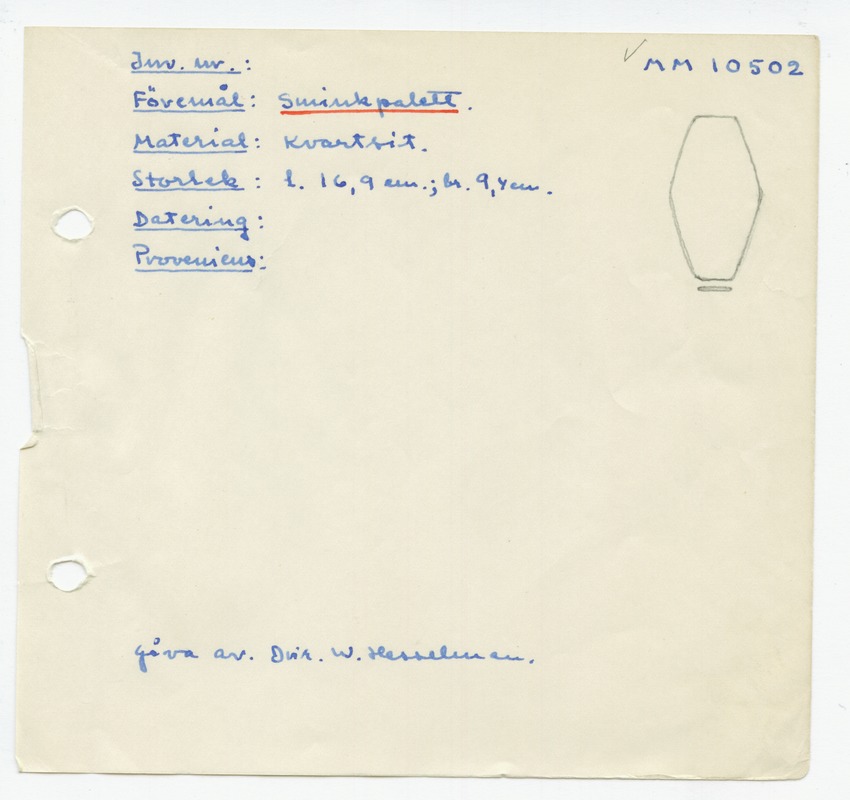 Inv. nr.:
MM 10502
Föremål: Sminkpalett.
Material: Kvartsit.
Storlek: l. 16,9 cm.; br. 9,4 cm.
Datering:
Proveniens:
Gåva av. Dir. W. Hesselman.